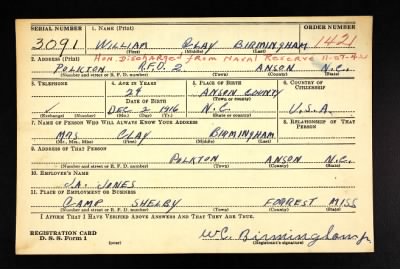 SERIAL NUMBER 1. NAME (Print) ORDER NUMBER
3091 WILLIAM CLAY BIRMINGHAM 1421
(First) (Middle) (Last)
2. ADDRESS (Print) Hon. Discharged from Naval Reserve 11-07-41
POLKTON R.F.D. 2 ANSON N.C.
(Number and street or R. F. D. number) (Town) (County) (State)
3. TELEPHONE 4. AGE IN YEARS 5. PLACE OF BIRTH 6. COUNTRY OF CITIZENSHIP
24 ANSON COUNTY
DATE OF BIRTH (Town or county)
DEC 2 1916 N.C. U.S.A.
(Exchange) (Number) (Mo.) (Day) (Yr.) (State or country)
7. NAME OF PERSON WHO WILL ALWAYS KNOW YOUR ADDRESS 8. RELATIONSHIP OF THAT PERSON
MRS CLAY BIRMINGHAM
(Mr., Mrs., Miss) (First) (Middle) (Last)
9. ADDRESS OF THAT PERSON
POLKTON ANSON N.C.
(Number and street or R. F. D. number) (Town) (County) (State)
10. EMPLOYER'S NAME
J.A. JONES
11. PLACE OF EMPLOYMENT OR BUSINESS
CAMP SHELBY FORREST MISS
(Number and street or R. F. D. number) (Town) (County) (State)
I AFFIRM THAT I HAVE VERIFIED ABOVE ANSWERS AND THAT THEY ARE TRUE.
REGISTRATION CARD
D. S. S. Form 1 (over) W.C. Birmingham Jr.
(Registrant's signature)